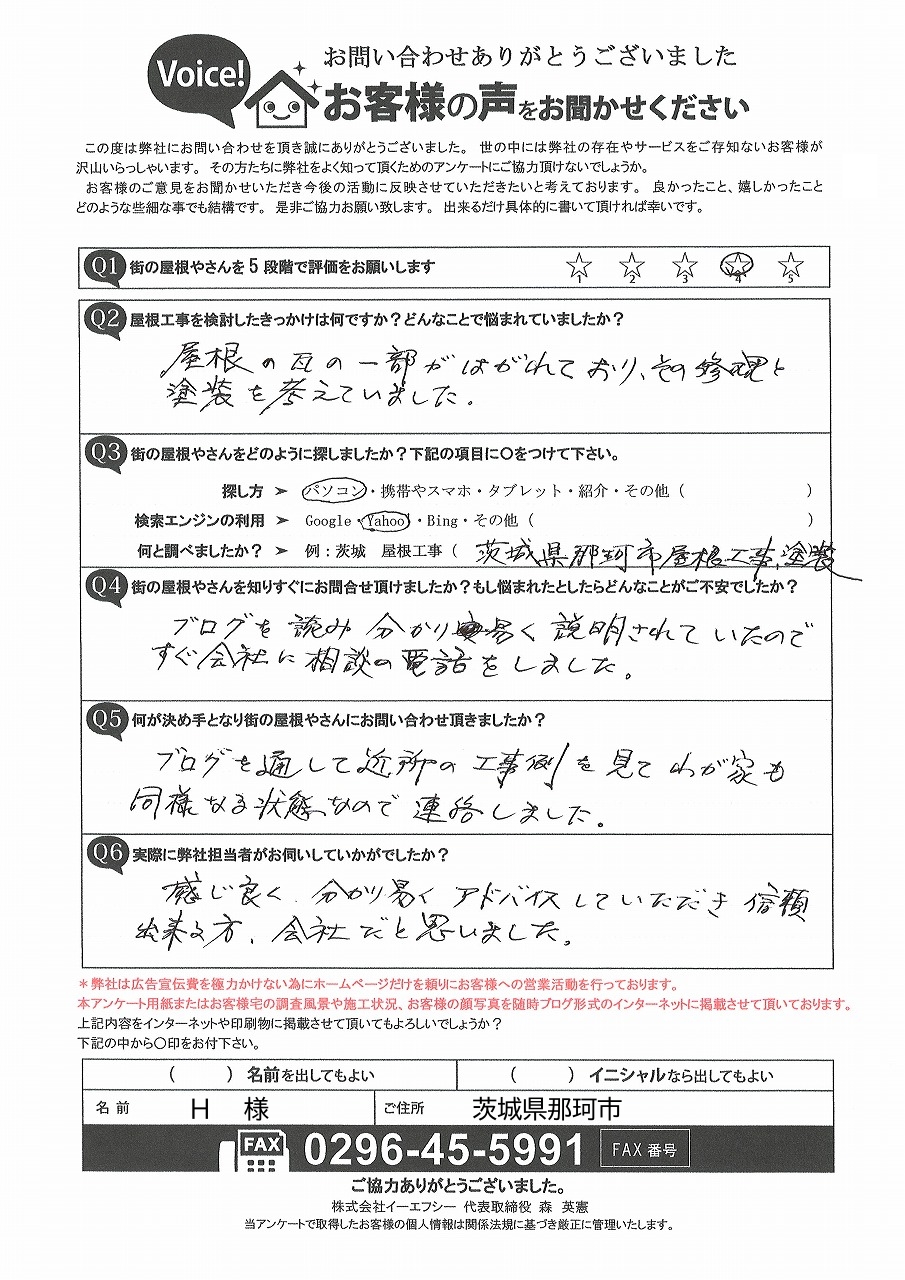 Voice!
お問い合わせありがとうございました
お客様の声をお聞かせください
この度は弊社にお問い合わせを頂き誠にありがとうございました。 世の中には弊社の存在やサービスをご存知ないお客様が
沢山いらっしゃいます。 その方たちに弊社をよく知って頂くためのアンケートにご協力頂けないでしょうか。
お客様のご意見をお聞かせいただき今後の活動に反映させていただきたいと考えております。 良かったこと、嬉しかったこと
どのような些細な事でも結構です。 是非ご協力お願い致します。 出来るだけ具体的に書いて頂ければ幸いです。
Q1 街の屋根やさんを5段階で評価をお願いします ☆1 ☆2 ☆3 ☆4 ☆5
Q2 屋根工事を検討したきっかけは何ですか？どんなことで悩まれていましたか？
屋根の瓦の一部がはがれており、その修理と
塗装を考えていました。
Q3 街の屋根やさんをどのように探しましたか？下記の項目に○をつけて下さい。
探し方 ➢ パソコン・携帯やスマホ・タブレット・紹介・その他（ ）
検索エンジンの利用 ➢ Google・Yahoo・Bing・その他（ ）
何と調べましたか？ ➢ 例：茨城 屋根工事（ 茨城県那珂市屋根工事、塗装
Q4 街の屋根やさんを知りすぐにお問合せ頂けましたか？もし悩まれたとしたらどんなことがご不安でしたか？
ブログを読み分かり易く説明されていたので
すぐ会社に相談の電話をしました。
Q5 何が決め手となり街の屋根やさんにお問い合わせ頂きましたか？
ブログを通して近所の工事例を見てわが家も
同様なる状態なので連絡しました。
Q6 実際に弊社担当者がお伺いしていかがでしたか？
感じ良く、分かり易くアドバイスしていただき信頼
出来る方、会社だと思いました。
＊弊社は広告宣伝費を極力かけない為にホームページだけを頼りにお客様への営業活動を行っております。
本アンケート用紙またはお客様宅の調査風景や施工状況、お客様の顔写真を随時ブログ形式のインターネットに掲載させて頂いております。
上記内容をインターネットや印刷物に掲載させて頂いてもよろしいでしょうか？
下記の中から○印をお付下さい。
（ ）名前を出してもよい （ ）イニシャルなら出してもよい
名前 H 様 ご住所 茨城県那珂市
FAX 0296-45-5991 FAX 番号
ご協力ありがとうございました。
株式会社イーエフシー 代表取締役 森 英憲
当アンケートで取得したお客様の個人情報は関係法規に基づき厳正に管理いたします。